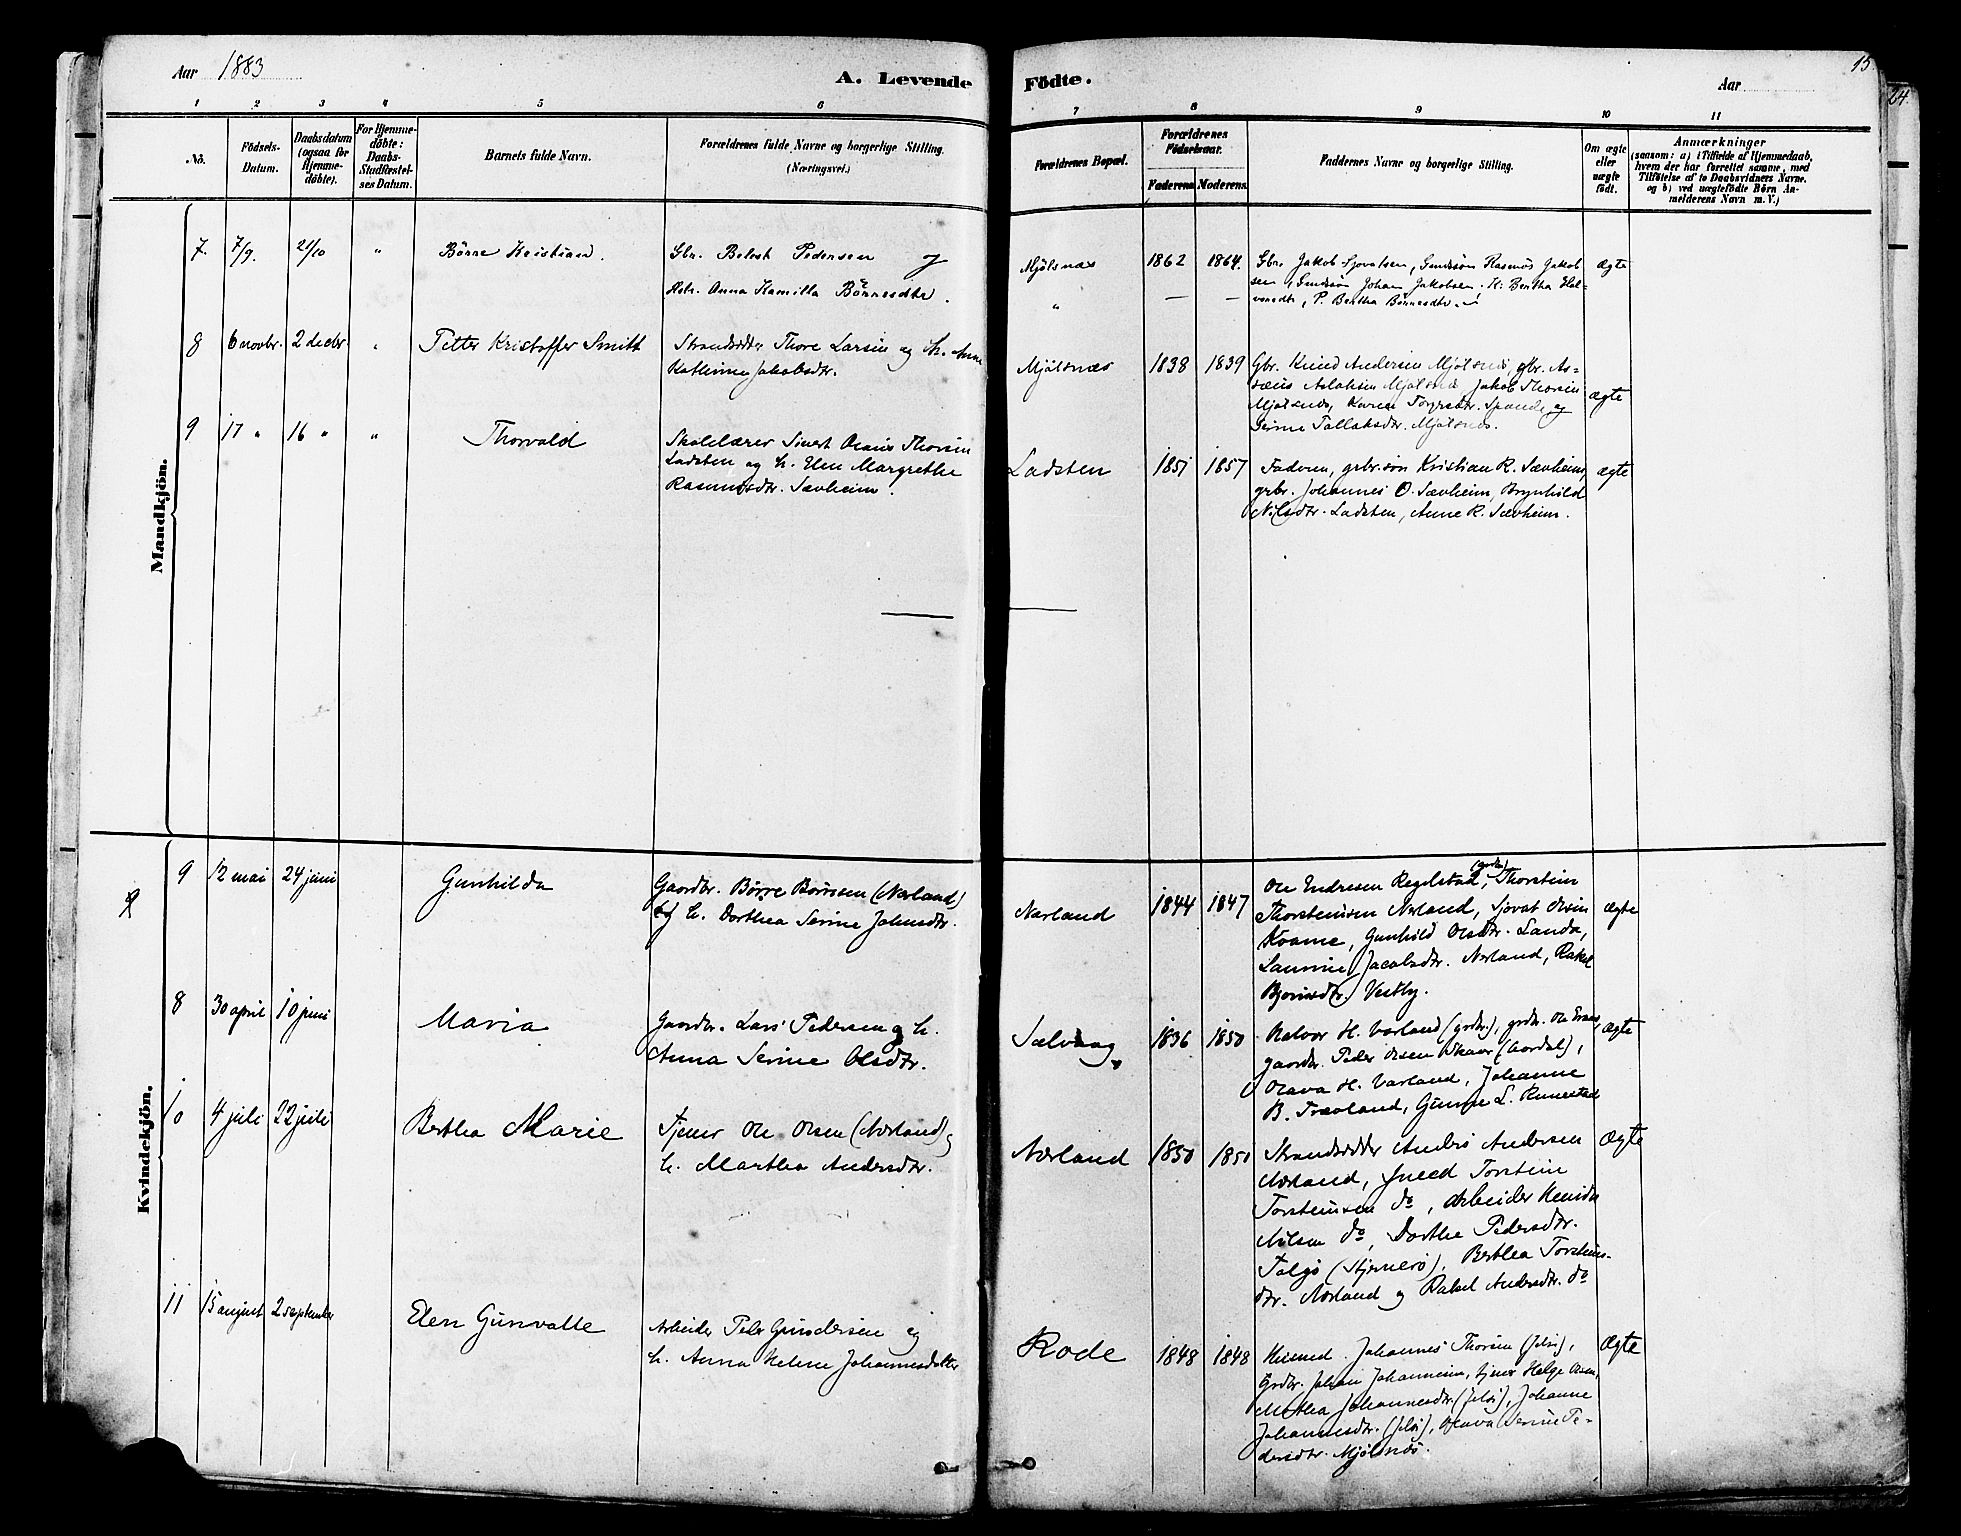 Aar 1883
A. Levende
Födte.
Aar
15.
24.
1 2 3 4 5 6
7 8 9 10 11
No.
Födsels-
Datum.
Daabsdatum
(ogsaa for
Hjemme-
döbte).
For Hjemme-
döbte:
Daabs-
Stadfæstel-
ses Datum.
Barnets fulde Navn.
Forældrenes fulde Navne og borgerlige Stilling.
(Næringsvei.)
Forældrenes Bopæl.
Forældrenes
Födselsaar.
Faderens. Moderens.
Faddernes Navne og borgerlige Stilling.
Om ægte
eller
uægte
födt.
Anmærkninger
(saasom: a) i Tilfælde af Hjemmedaab,
hvem der har forrettet samme, med
Tilföielse af to Daabsvidners Navne.
og b) ved uægtefödte Börn An-
melderens Navn m. V.)
Mandkjön.
7. 7/9. 21/10 " Börre Kristian.
Gbr. Belest Pedersen og
Anna Kamilla Börresdtr.
Mjölsnæs
"
1862 1864.
— —
Gbr. Jakob Sjovatsen, Rasmus Jakob
sen, Johan Jakobsen. K: Bertha Hal-
vorsdtr, P. Bertha Börresdtr.
ægte
8 6 novbr. 2 decbr. " Petter Kristoffer Smitt
Strandsidder Thore Larsen og h. Anne
Kathrine Jakobsdtr.
Mjölsnæs
1838 1839
Gbr. Knud Andersen Mjölsnæs, gbr. As-
Aslaksen Mjölsnæs Jakob Thorsen
Mjölsnæs, Karen og
Serine Tallaksdtr. Mjölsnæs.
ægte
9 17 " 16 " " Thorvald
Skolelærer Sivert Olaus Thorsen
Ladsten og h. Elen Margrethe
Rasmusdtr. Sævheim.
Ladsten
1851 1857
Faderen, grbr.sön Kristian R. Sævheim,
grbr. Johannes O. Sævheim, Brynhild
Nilsdtr. Ladsten, Anne R. Sævheim.
ægte
Kvindekjön.
9 12 mai 24 juni Gunhilda
Gaardbr. Börre Börresen (Nærland)
og h. Dorthea Serine Johnsdtr.
Nærland
1844 1847
Ole Endresen Regelstad, (grdbr.) Thorstein
Thorsteinsen Nærland, Sjovat Olsen
Kvame, Gunhild Olsdtr. Landa,
Laurine Jacobsdtr. Nærland, Rakel
Bjørnsdtr. Vestby.
ægte
8 30 april 10 juni Maria
Gaardbr. Lars Pedersen og h.
Anna Serine Olsdtr.
Sælvaag
1836 1850
Halvor H. Varland (grdbr.), grdbr. Ole
gaardbr. Peder Olsen Skaar (Aardal),
Olava H. Varland, Johanne
B. Trævland, Gunne L. Runestad
ægte
10 4 juli 22 juli Berthea Marie
Tjener Ole Olsen (Nærland) og
h. Marthea Andersdtr.
Nærland
1850 1850
Strandsidder Andres Andersen
Nærland, Torstein
Torsteinsen do, Arbeider
Nilsen do, Dorthe Pedersdtr.
Talgö (Stjernerö), Berthea Torsteins-
dtr. Nærland og Rakel Andersdtr. do
Ægte
11 15 august 2 september Elen Gunvalle
Arbeider Peder Gundersen og
h. Anna Helene Johannesdatter
Rode
1848 1848
Johannes Thorsen (Jelsö),
Grdbr. Johan Johannesen, tjener Helge Olsen,
Marthea Johannesdtr. (Jelsö), Johanne
Johannesdtr. (Jelsö), Olava Serine Pe-
dersdtr. Mjölsnæs.
Ægte